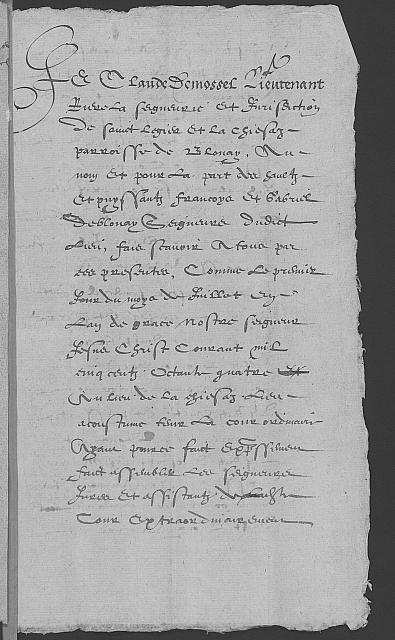 Je Claude Demossel Lieutenant
Riere La seigneurie et Jurisdiction
de sainct Legier et la Chiesaz
parroisse de Blonay, Au
nom et pour La part des haultz
et puyssantz Francoys et Gabriel
Deblonay Seigneurs dudict
Lieu, fais scavoir A tous par
ces presentes, Comme Le premier
Jour du moys de Juillet En
Lan de grace nostre seigneur
Jesus Christ Courant mil
cinq centz Octante quatre et
Au lieu de la chiesaz Lieu
acoustume tenir La cour ordinaire
Ayant pource faict Expressement
faict assembler Les seigneurs
Jures et assistantz de
Cour Extraordinairement